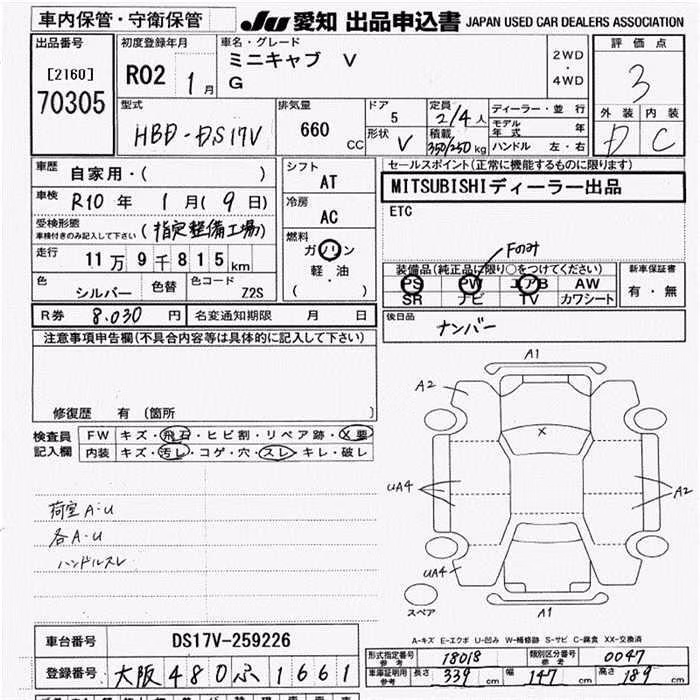 車内保管・守衛保管 JU 愛知 出品申込書 JAPAN USED CAR DEALERS ASSOCIATION
出品番号
[2160]
70305
初度登録年月
R02 1月
車名・グレード
ミニキャブ V
G
2WD
・
4WD
評価点
3
外装 内装
D C
型式
HBD-DS17V
排気量
660 CC
ドア
5
形状
V
定員
2/4人
積載
350/250kg
ディーラー・並行
モデル年式 年
ハンドル 左・右
車歴
自家用・( )
車検
R10年 1月(9日)
受検形態
車検付きのみ記入して下さい
(指定整備工場)
走行
11万9千815km
色
シルバー
色替
色コード
Z2S
シフト
AT
冷房
AC
燃料
ガソリン
軽・油
( )
セールスポイント(正常に機能するものに限ります)
MITSUBISHIディーラー出品
ETC
Fのみ
装備品(純正品に限り○をつけてください)
PS PW エアB AW
SR ナビ TV カワシート
新車保証書
有・無
後日品
ナンバー
R券 8.030円
名変通知期限 月 日
注意事項申告欄(不具合内容等は具体的に記入して下さい)
修復歴 有(箇所 )
検査員
記入欄
FW キズ・飛石・ヒビ割・リペア跡・X要
内装 キズ・汚レ・コゲ・穴・スレ・キレ・破レ
荷室A・U
各A・U
ハンドルスレ
A1
A2
X
UA4
A2
UA4
A1
スペア
A-キズ E-エクボ U-凹み W-補修跡 S-サビ C-腐食 XX-交換済
車台番号
DS17V-259226
登録番号
大阪480ふ1661
形式指定番号
参考
18018
類別区分番号
参考
0047
車庫証明用
参考
長さ 339cm
幅 147cm
高さ 189cm